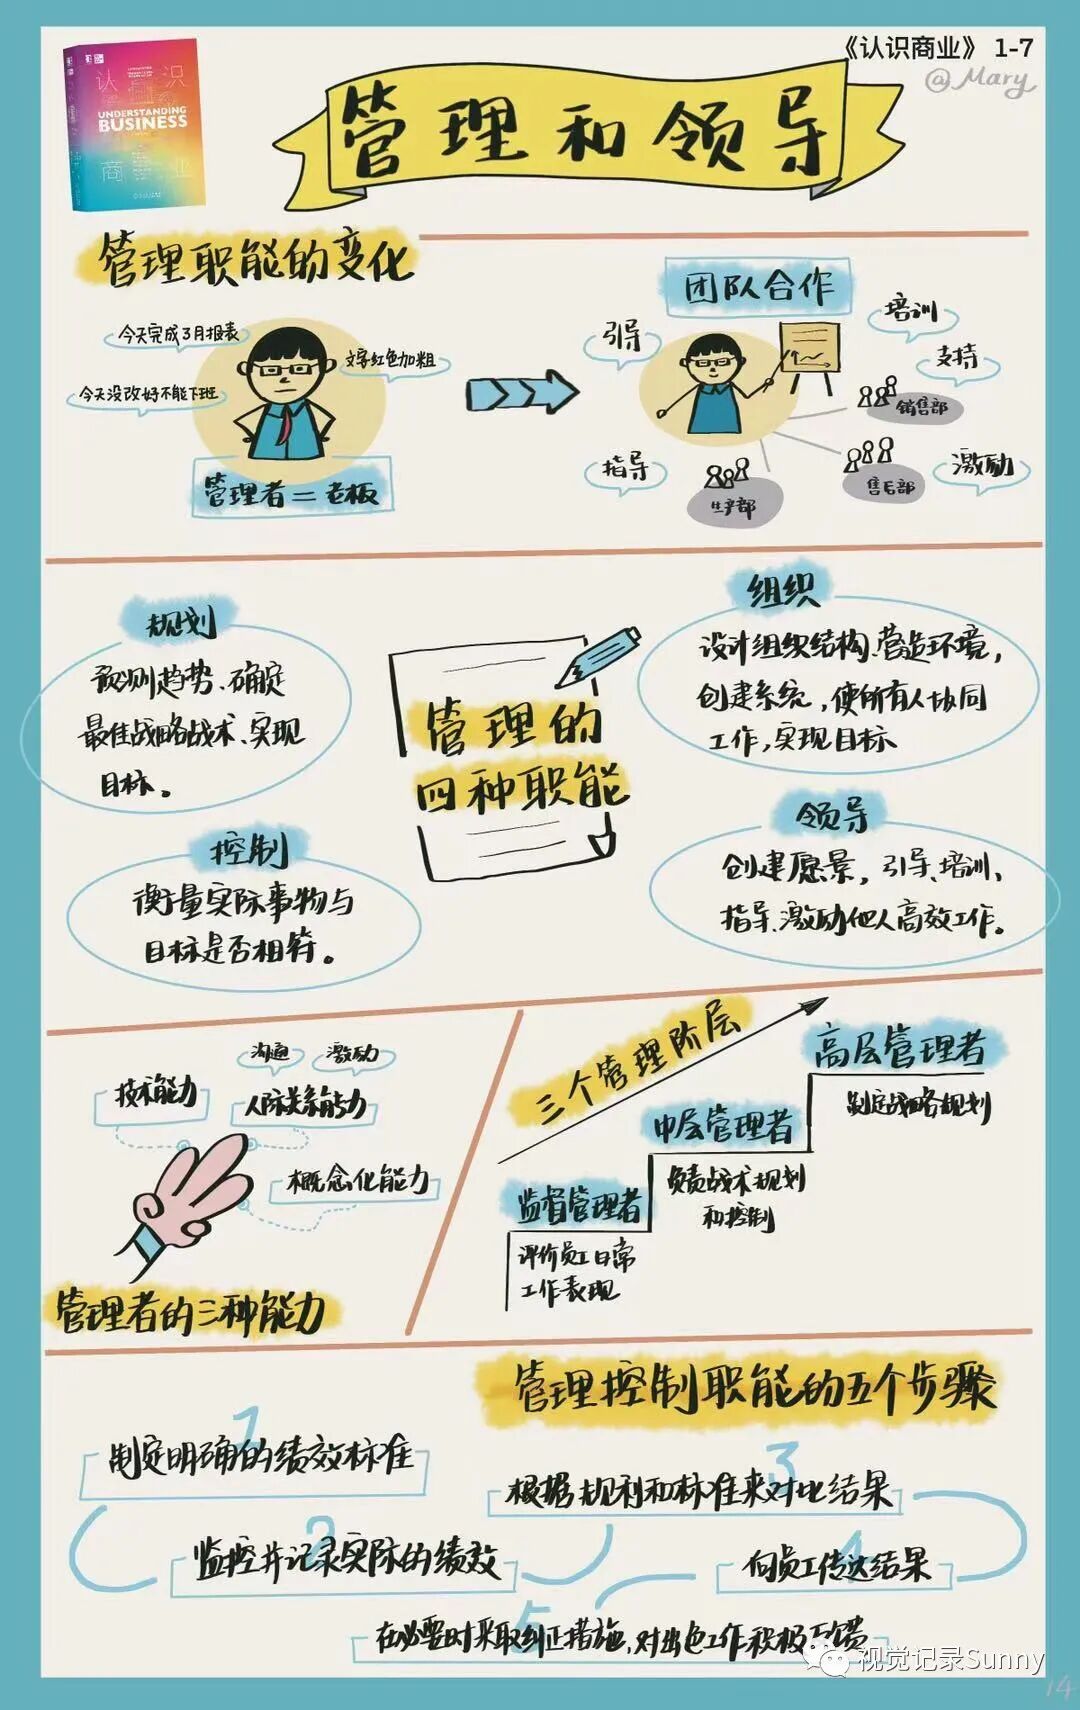 《认识商业》 1-7
@Mary
认识
UNDERSTANDING
BUSINESS
商业
管理和领导
管理职能的变化
今天完成3月报表
文字红色加粗
今天没改好不能下班
管理者=老板
团队合作
引导
培训
支持
销售部
指导
激励
售后部
生产部
规划
预测趋势、确定
最佳战略战术、实现
目标。
组织
设计组织结构、营造环境,
创建系统,使所有人协同
工作,实现目标
管理的
四种职能
控制
衡量实际事物与
目标是否相符。
领导
创建愿景,引导、培训、
指导、激励他人高效工作。
沟通
激励
技术能力
人际关系能力
概念化能力
管理者的三种能力
三个管理阶层
高层管理者
制定战略规划
中层管理者
负责战术规划
和控制
监督管理者
评价员工日常
工作表现
管理控制职能的五个步骤
1
制定明确的绩效标准
2
监控并记录实际的绩效
3
根据规利和标准来对比结果
4
向员工传达结果
5
在必要时采取纠正措施,对出色工作积极
视觉记录Sunny
14